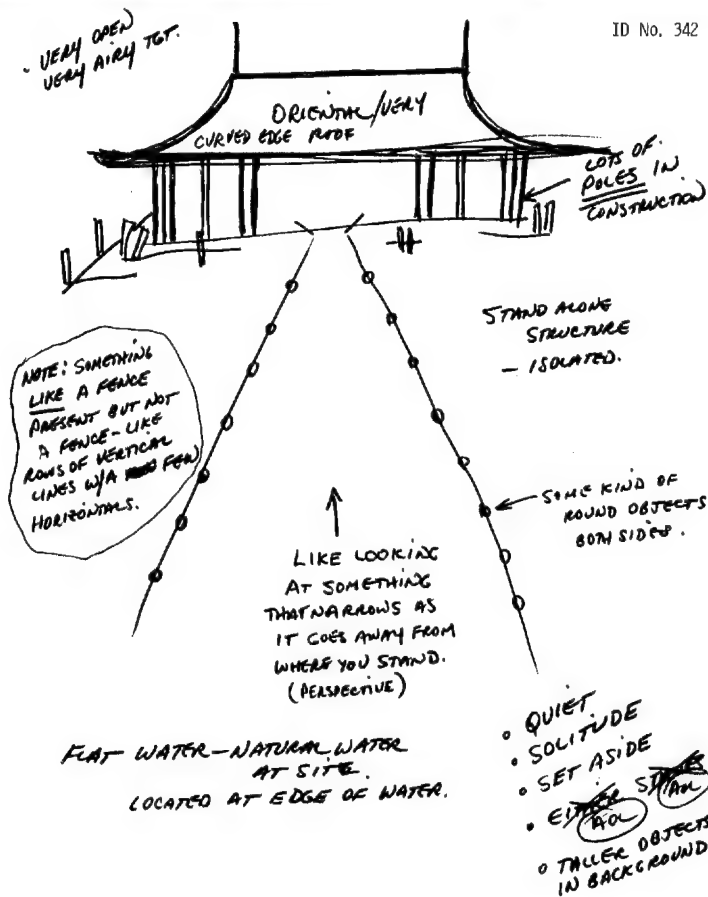 ID No. 342
- VERY OPEN
VERY AIRY TGT.
ORIENTAL/VERY
CURVED EDGE ROOF
LOTS OF
POLES IN
CONSTRUCTION
STAND ALONE
STRUCTURE
- ISOLATED.
NOTE: SOMETHING
LIKE A FENCE
PRESENT BUT NOT
A FENCE - LIKE
ROWS OF VERTICAL
LINES W/A FEW
HORIZONTALS.
SOME KIND OF
ROUND OBJECTS
BOTH SIDES.
LIKE LOOKING
AT SOMETHING
THAT NARROWS AS
IT GOES AWAY FROM
WHERE YOU STAND.
(PERSPECTIVE)
FLAT WATER - NATURAL WATER
AT SITE.
LOCATED AT EDGE OF WATER.
• QUIET
• SOLITUDE
• SET ASIDE
• EITHER SIDES AOL
AOL
• TALLER OBJECTS
IN BACKGROUND